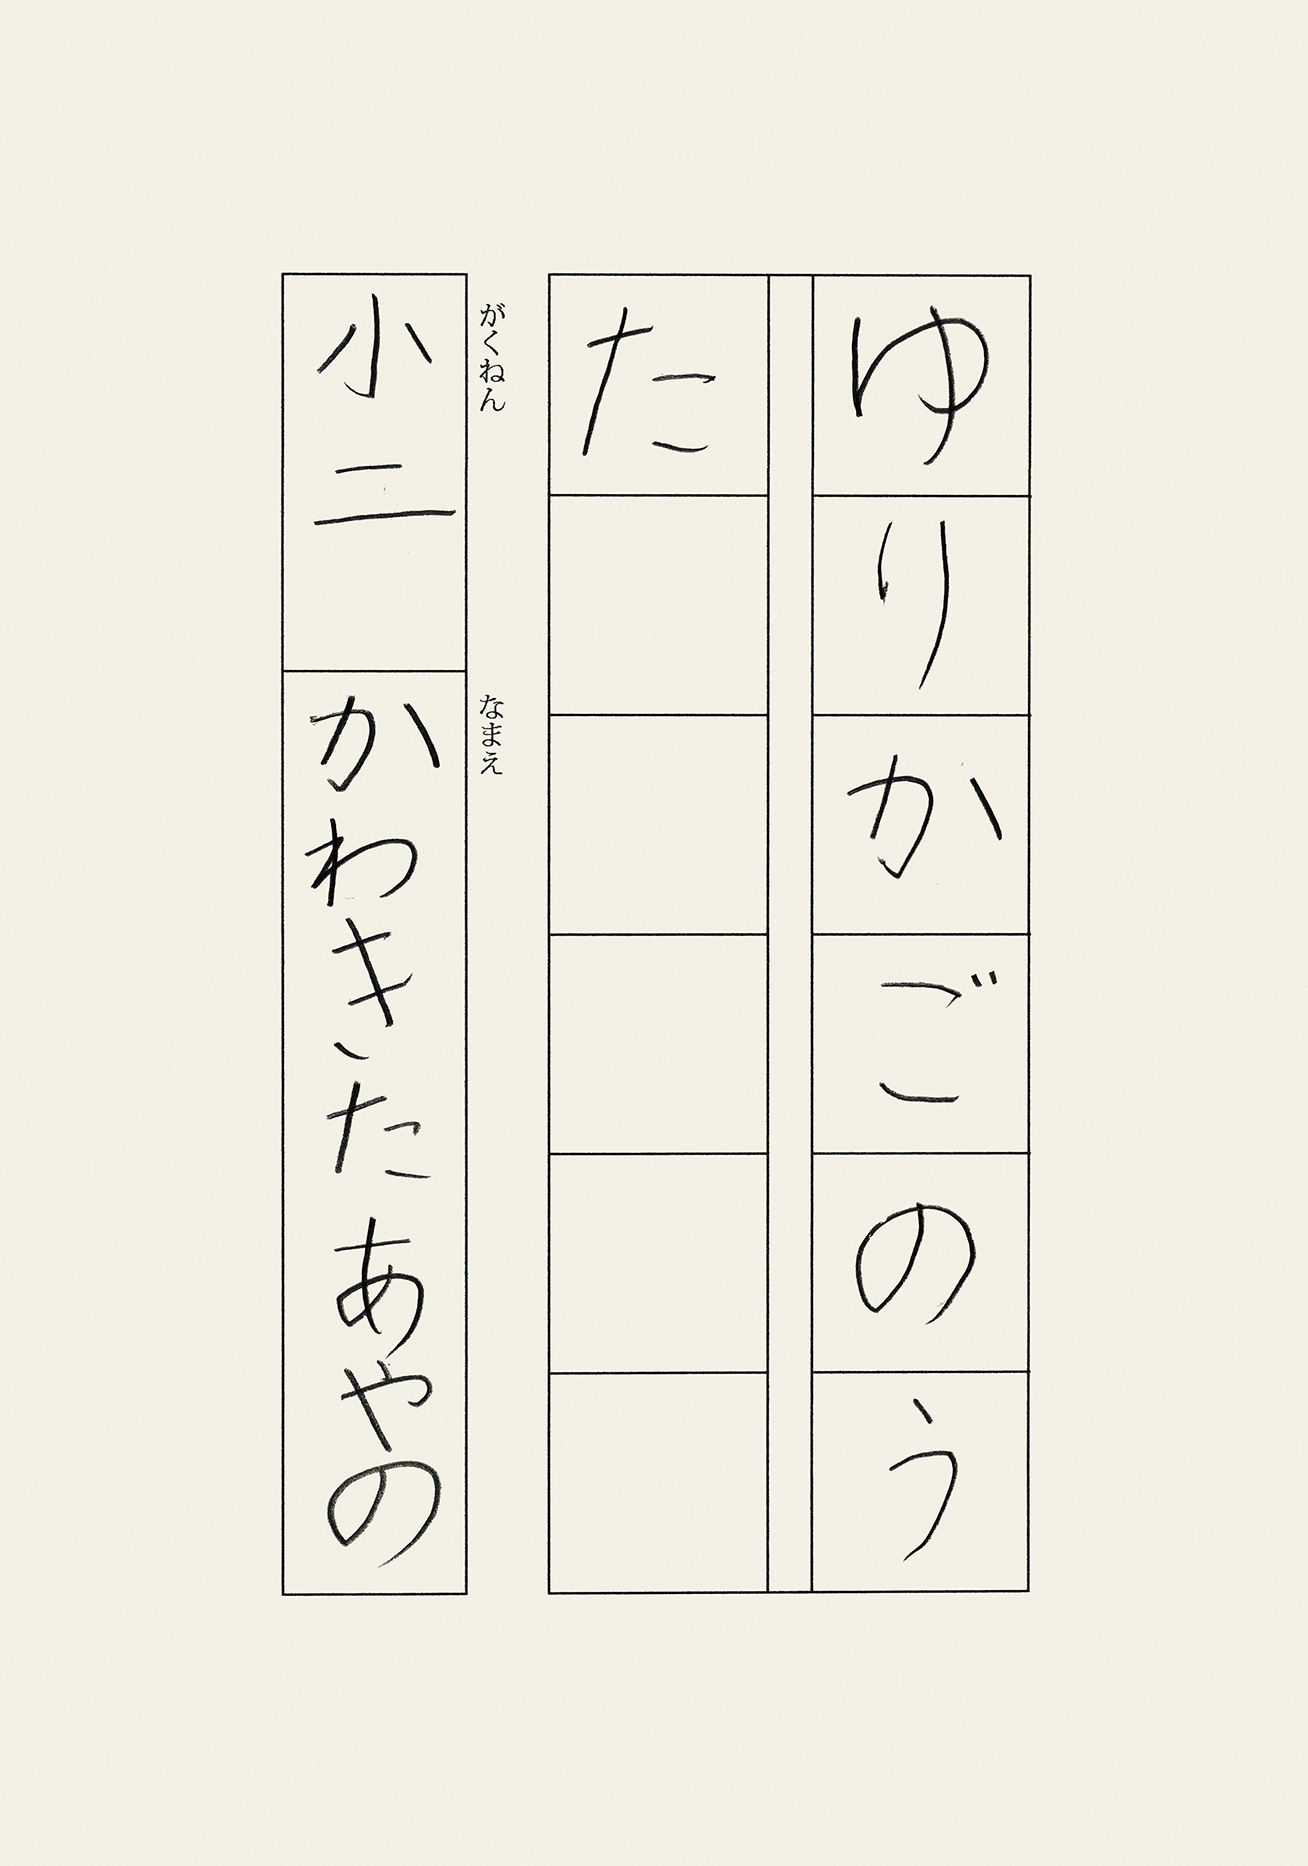 ゆりかごのう
た
がくねん
小二
なまえ
かわきたあやの